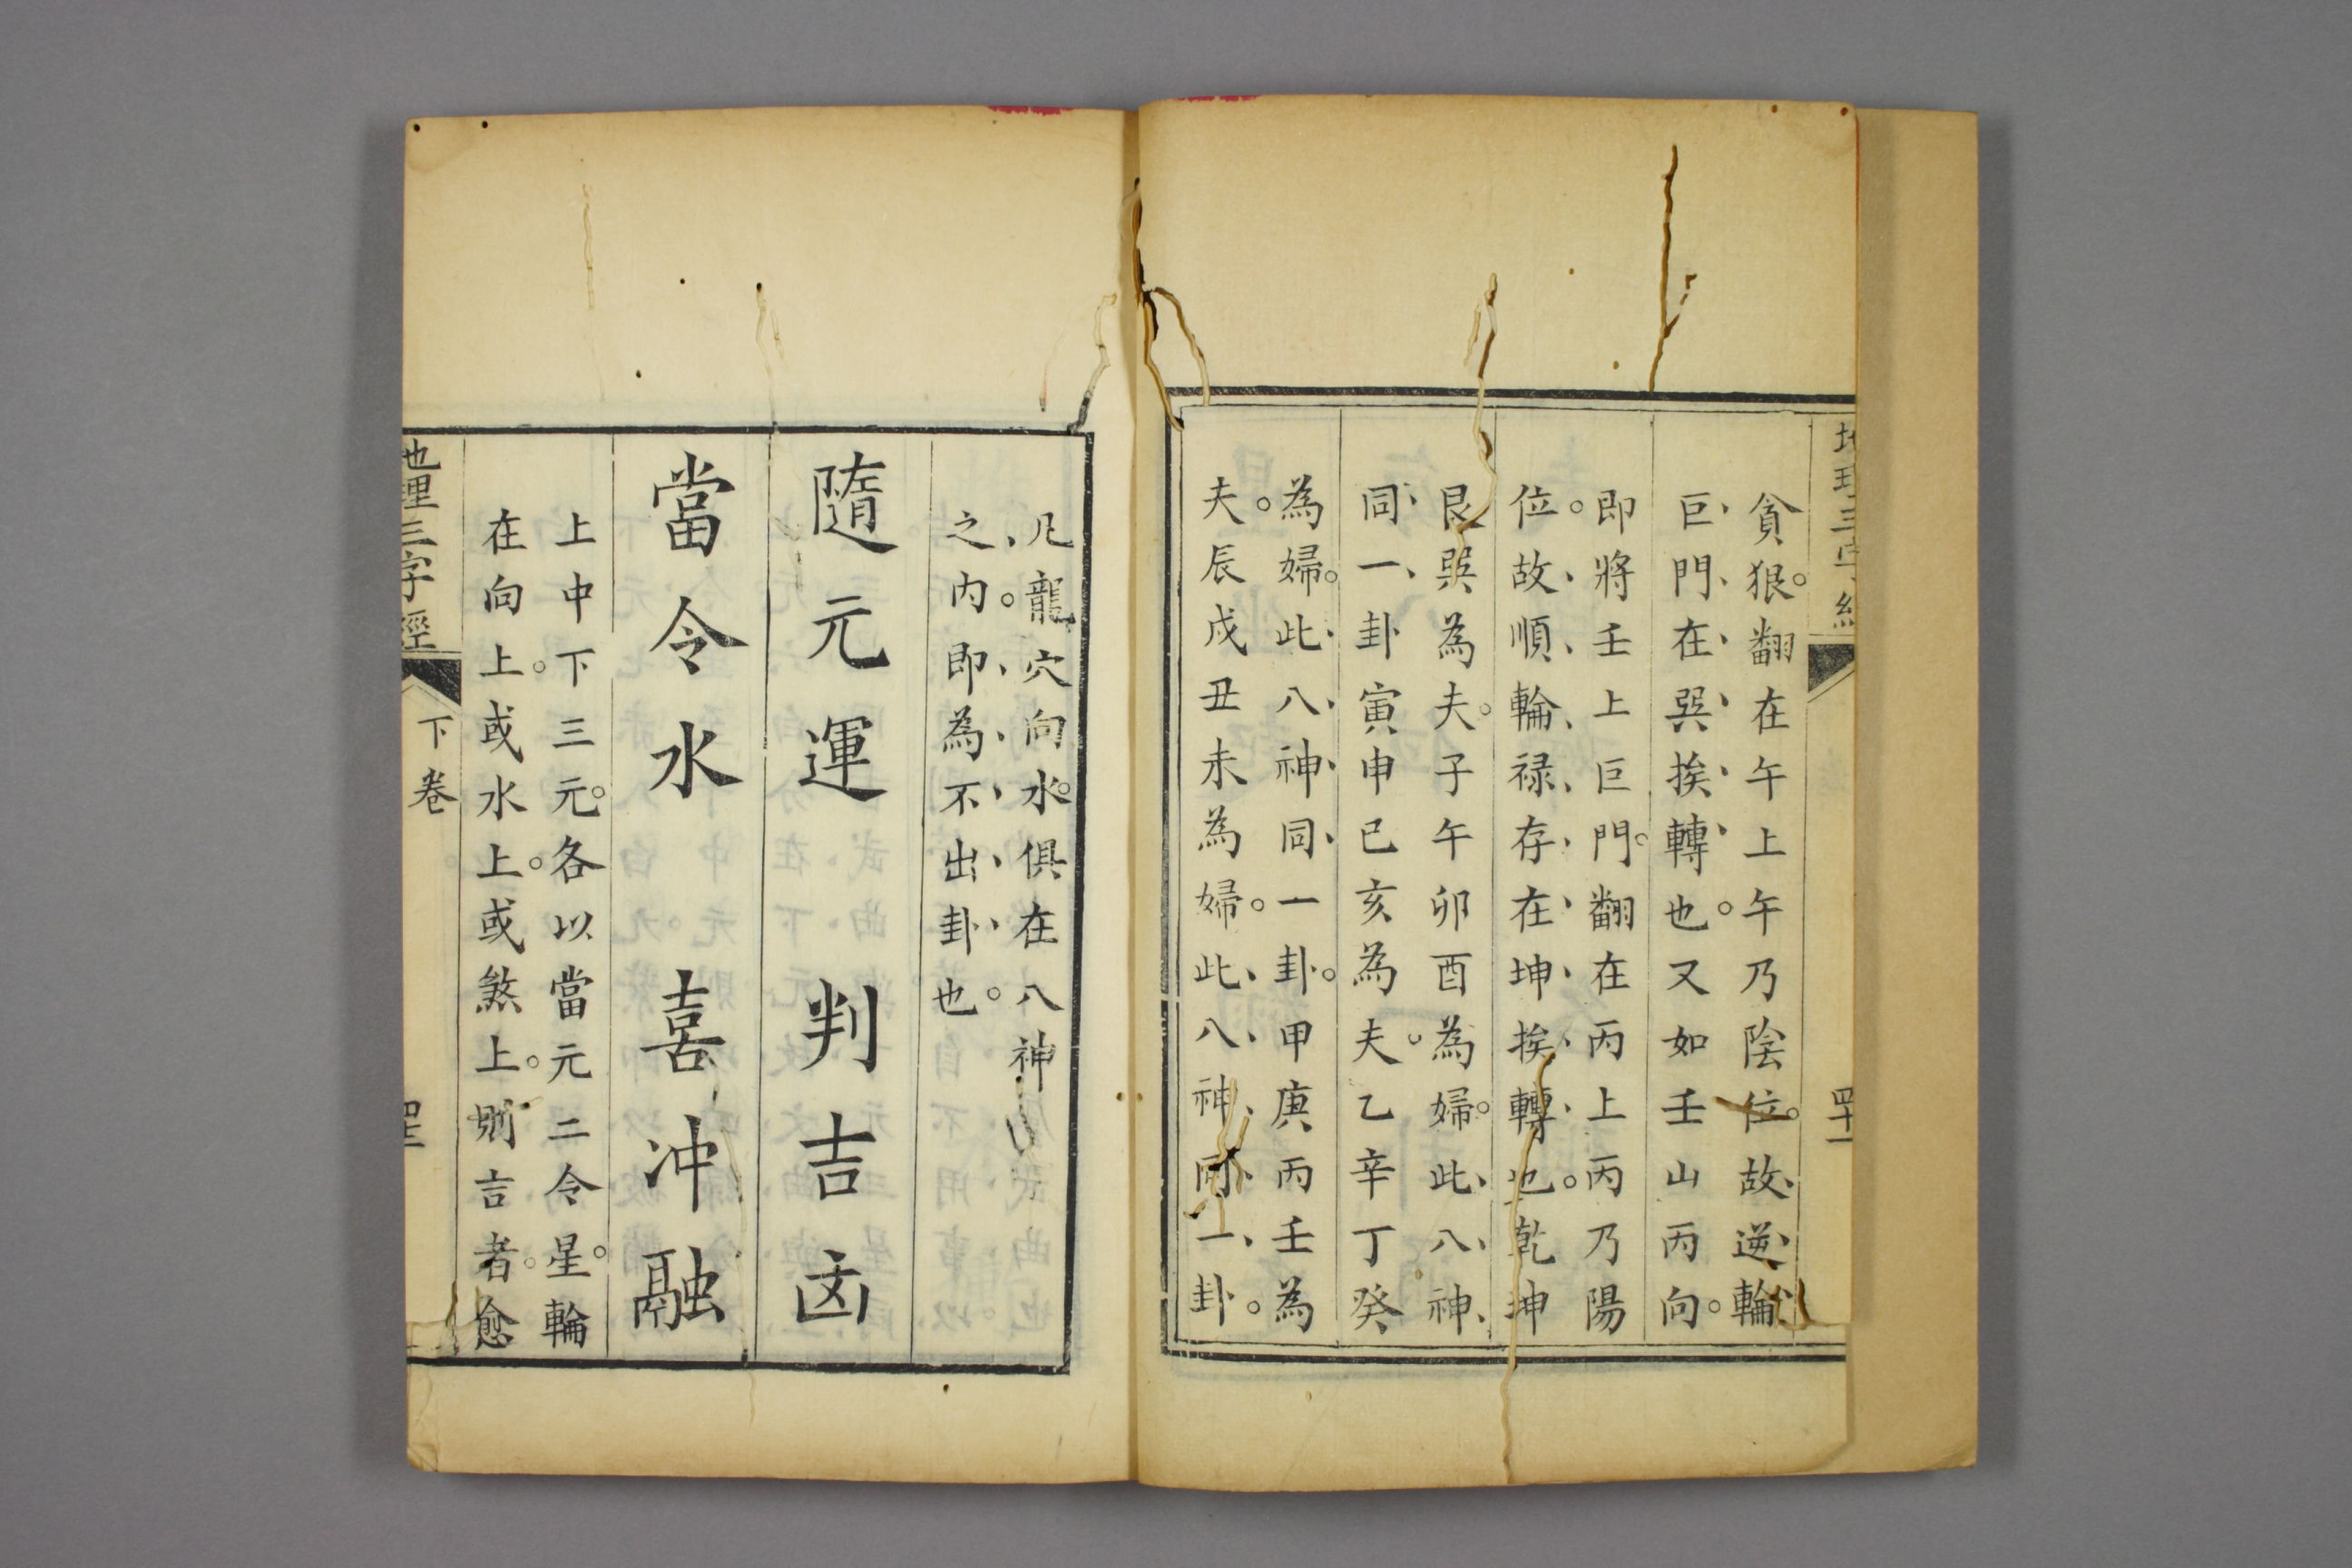 貪狠。翻在午上午乃陰位。故逆輪
巨門在巽挨轉也。又如壬山丙向。
即將壬上巨門。翻在丙上丙乃陽
位。故順輪禄存在坤挨轉也。乾坤
艮巽為夫。子午卯酉為婦。此八神
同一卦寅申巳亥為夫。乙辛丁癸
為婦。此八神同一卦。甲庚丙壬為
夫。辰戌丑未為婦。此八神同一卦。
凡龍穴向水。俱在八神
之內。即為不出卦也。
隨元運 判吉凶
當令水 喜冲融
上中下三元。各以當元二令星。輪
在向上。或水上。或煞上。則吉者。愈
地理三字經 下卷